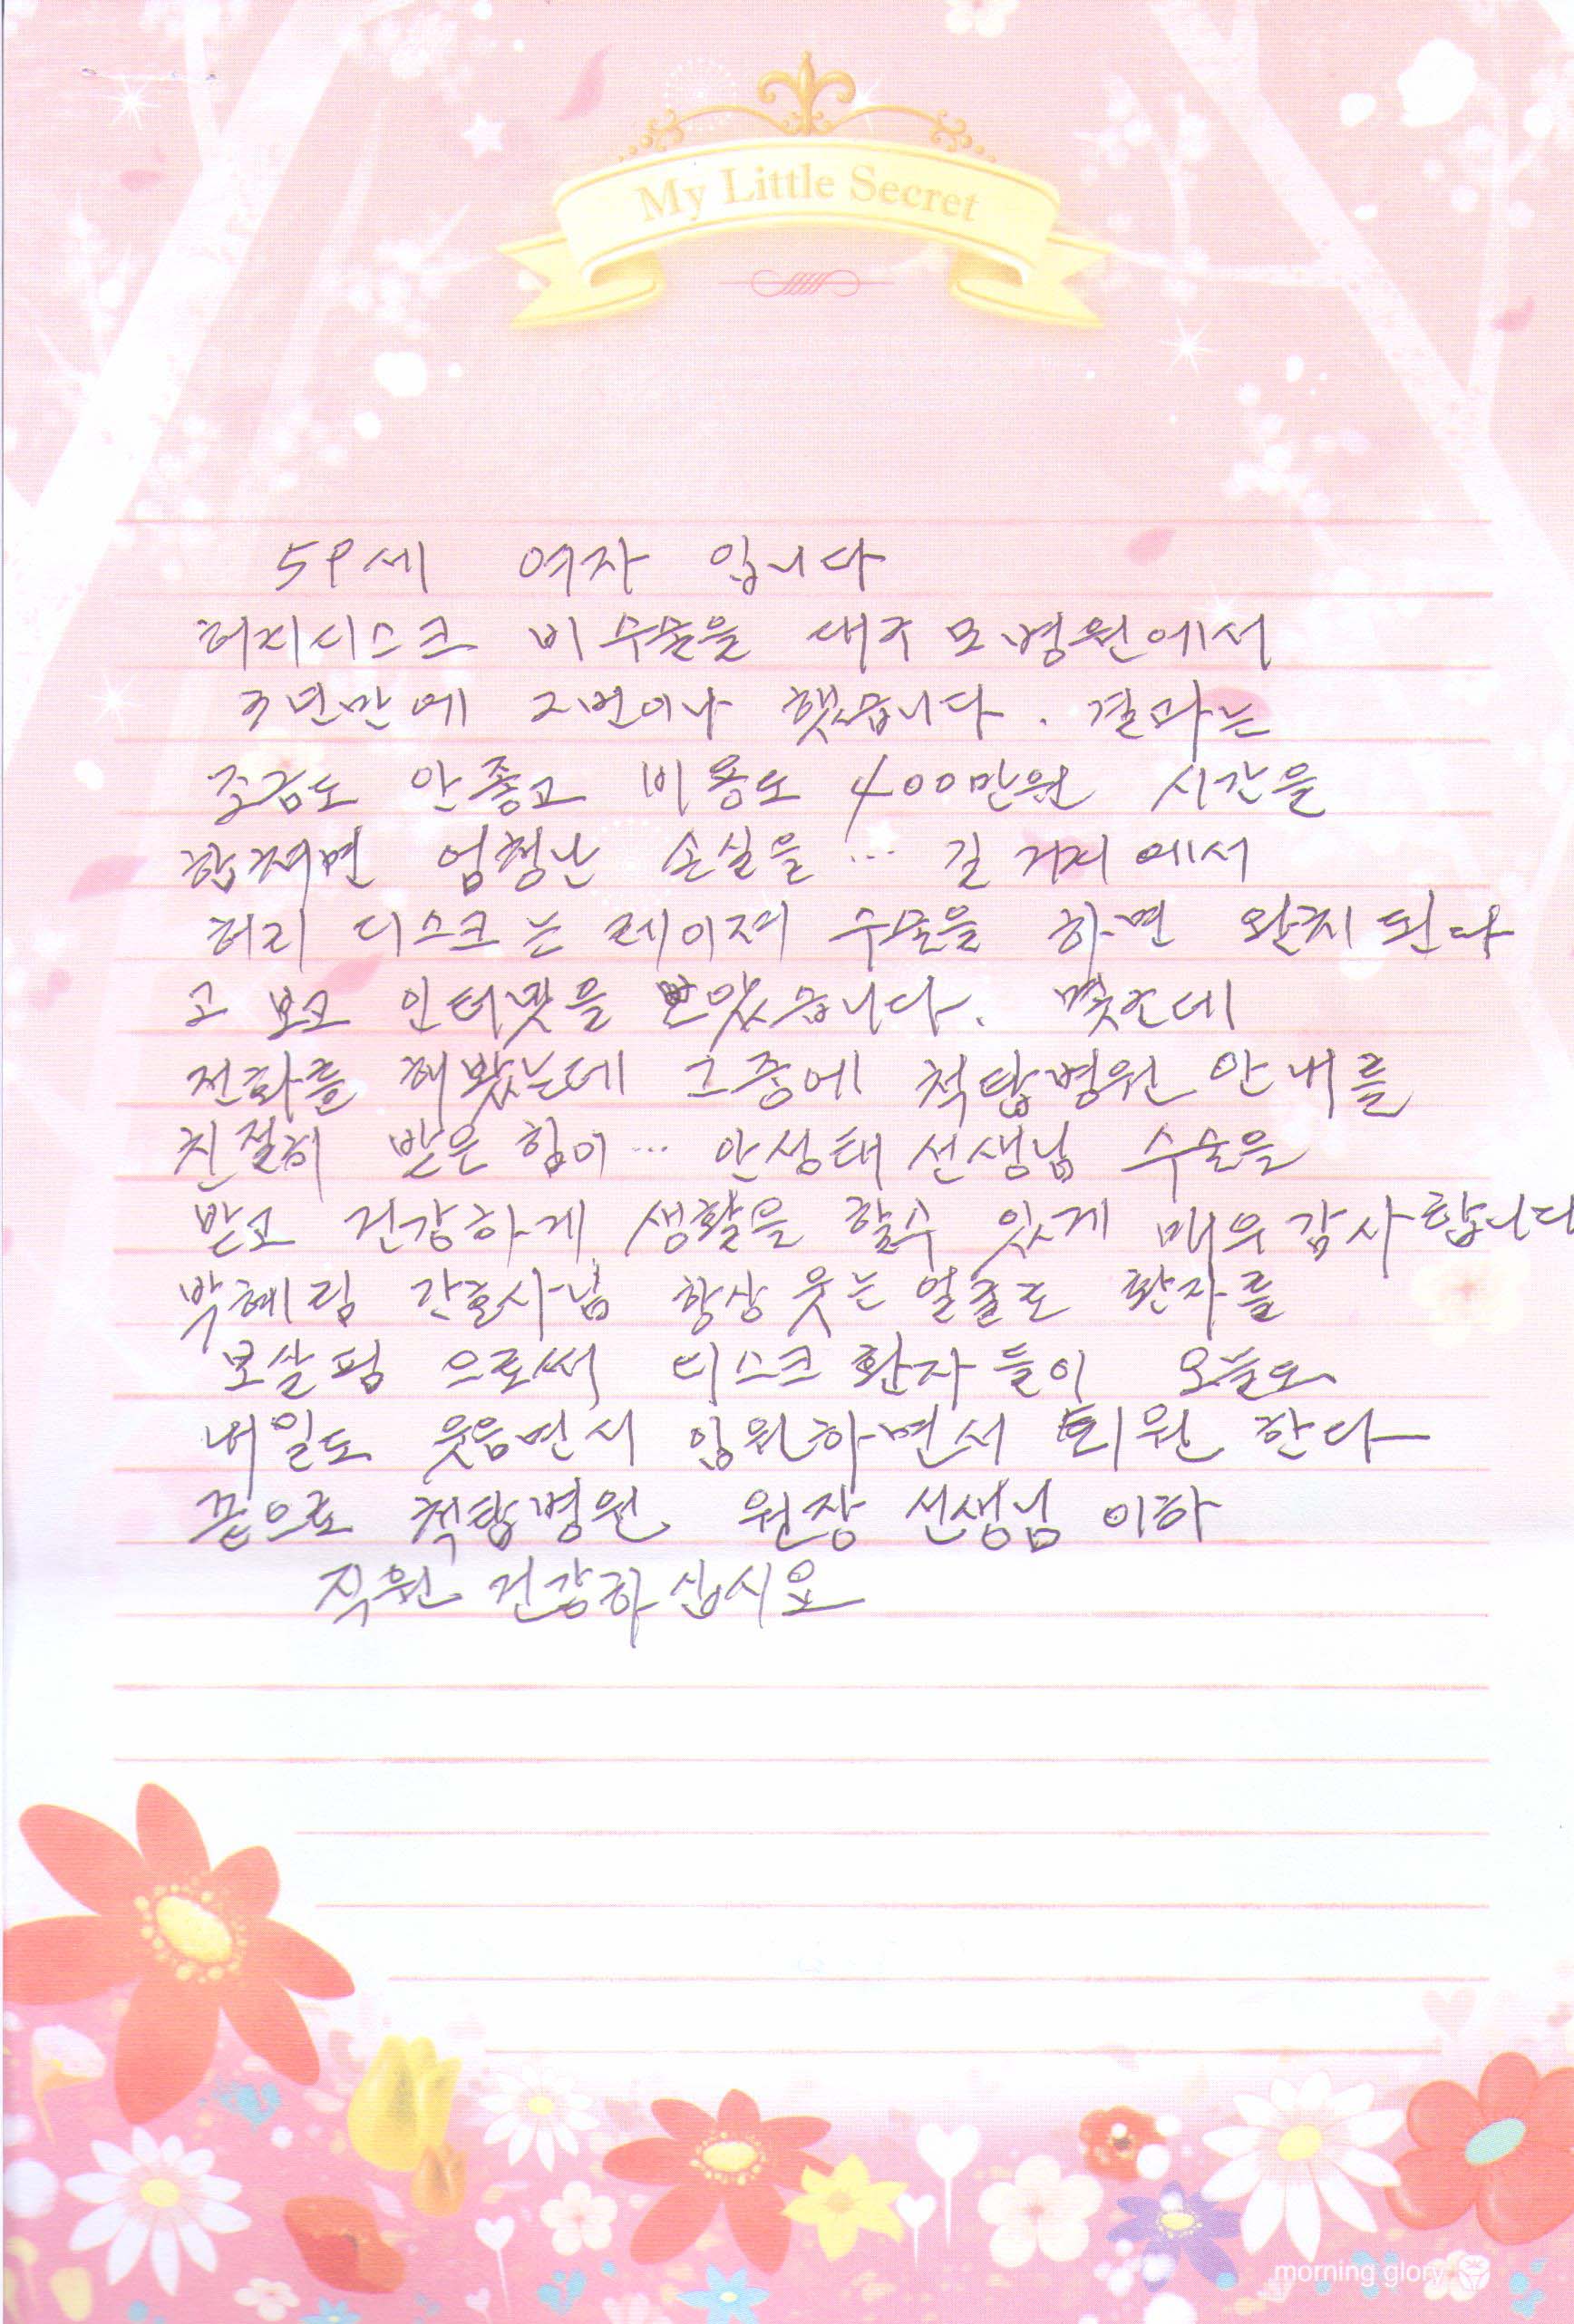 My Little Secret
59세 여자 입니다
허리디스크 비수술을 대구 모병원에서
3년만에 2번이나 했습니다. 결과는
조금도 안좋고 비용도 400만원 시간을
합처면 엄청난 손실을 … 길 거리에서
허리 디스크는 레이져 수술을 하면 완치된다
고 보고 인터넷을 보았습니다. 몇군데
전화를 해봤는데 그중에 척탑병원 안내를
친절히 받은 힘이 … 안성태 선생님 수술을
받고 건강하게 생활을 할수 있게 매우감사합니다
박혜림 간호사님 항상 웃는 얼굴로 환자를
보살핌 으로써 디스크 환자들이 오늘도
내일도 웃음면서 입원하면서 퇴원 한다
끝으로 척탑병원 원장 선생님 이하
직원 건강하십시요
morning glory